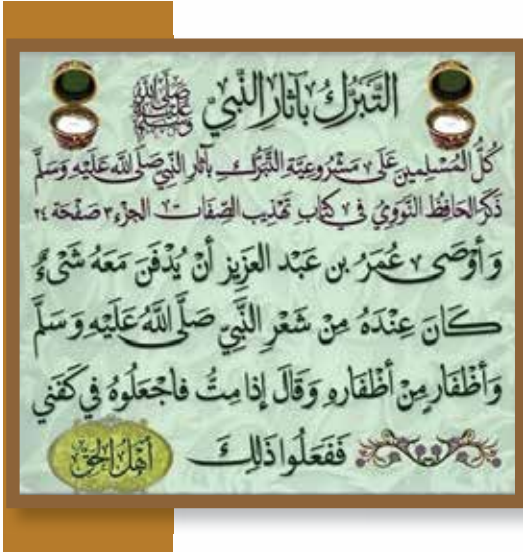 التَّبَرُّكُ بِآثَارِ النَّبِيِّ صَلَّى اللَّهُ عَلَيْهِ وَسَلَّمَ
كُلُّ المُسْلِمِينَ عَلَى مَشْرُوعِيَّةِ التَّبَرُّكِ بِآثَارِ النَّبِيِّ صَلَّى اللَّهُ عَلَيْهِ وَسَلَّمَ
ذَكَرَ الحَافِظُ النَّوَوِيُّ فِي كِتَابِ تَهْذِيبِ الصِّفَاتِ الجزء ٣ صَفْحَة ٢٤
وَ أَوْصَى عُمَرُ بن عَبْدِ العَزِيزِ أَنْ يُدْفَنَ مَعَهُ شَيْءٌ
كَانَ عِنْدَهُ مِنْ شَعْرِ النَّبِيِّ صَلَّى اللَّهُ عَلَيْهِ وَسَلَّمَ
وَأَظْفَارٍ مِنْ أَظْفَارِهِ وَقَالَ إِذَا مِتُّ فَاجْعَلُوهُ فِي كَفَنِي
فَفَعَلُوا ذَلِكَ
أَهْلُ الحَقِّ